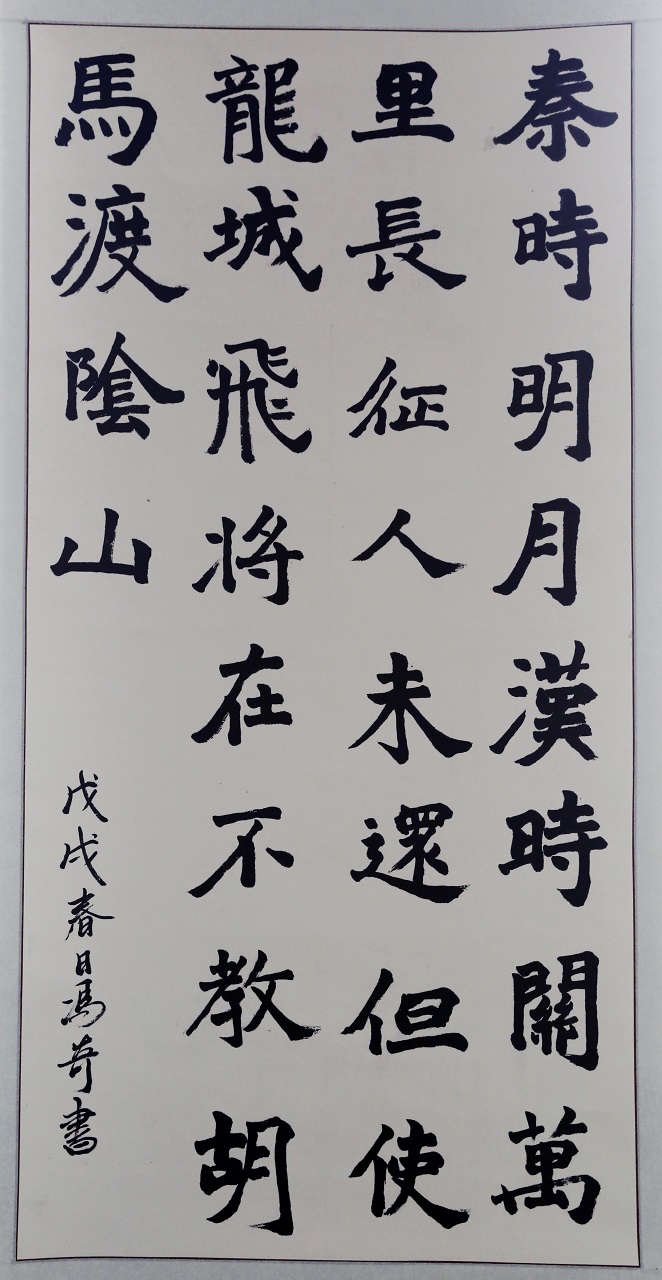 秦時明月漢時關萬
里長征人未還但使
龍城飛將在不教胡
馬渡陰山
戊戌春日馮奇書